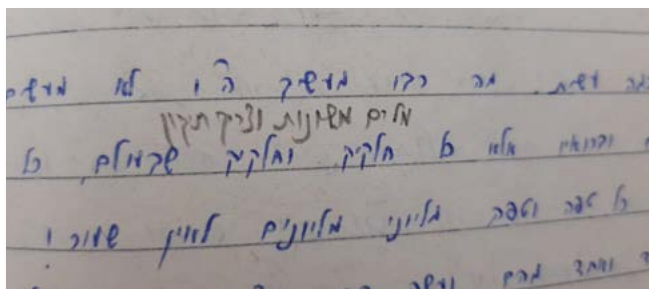 עשית. מה רבו מעשיך ה' ו לא מעשים
מלים משונות וצריך תיקון
וברואיו אלא כל חלקיק וחלקיק שבעולם, כל
כל טפה וטפה מליוני מליונים לאין שעור ו
ואחד מהם ועשה